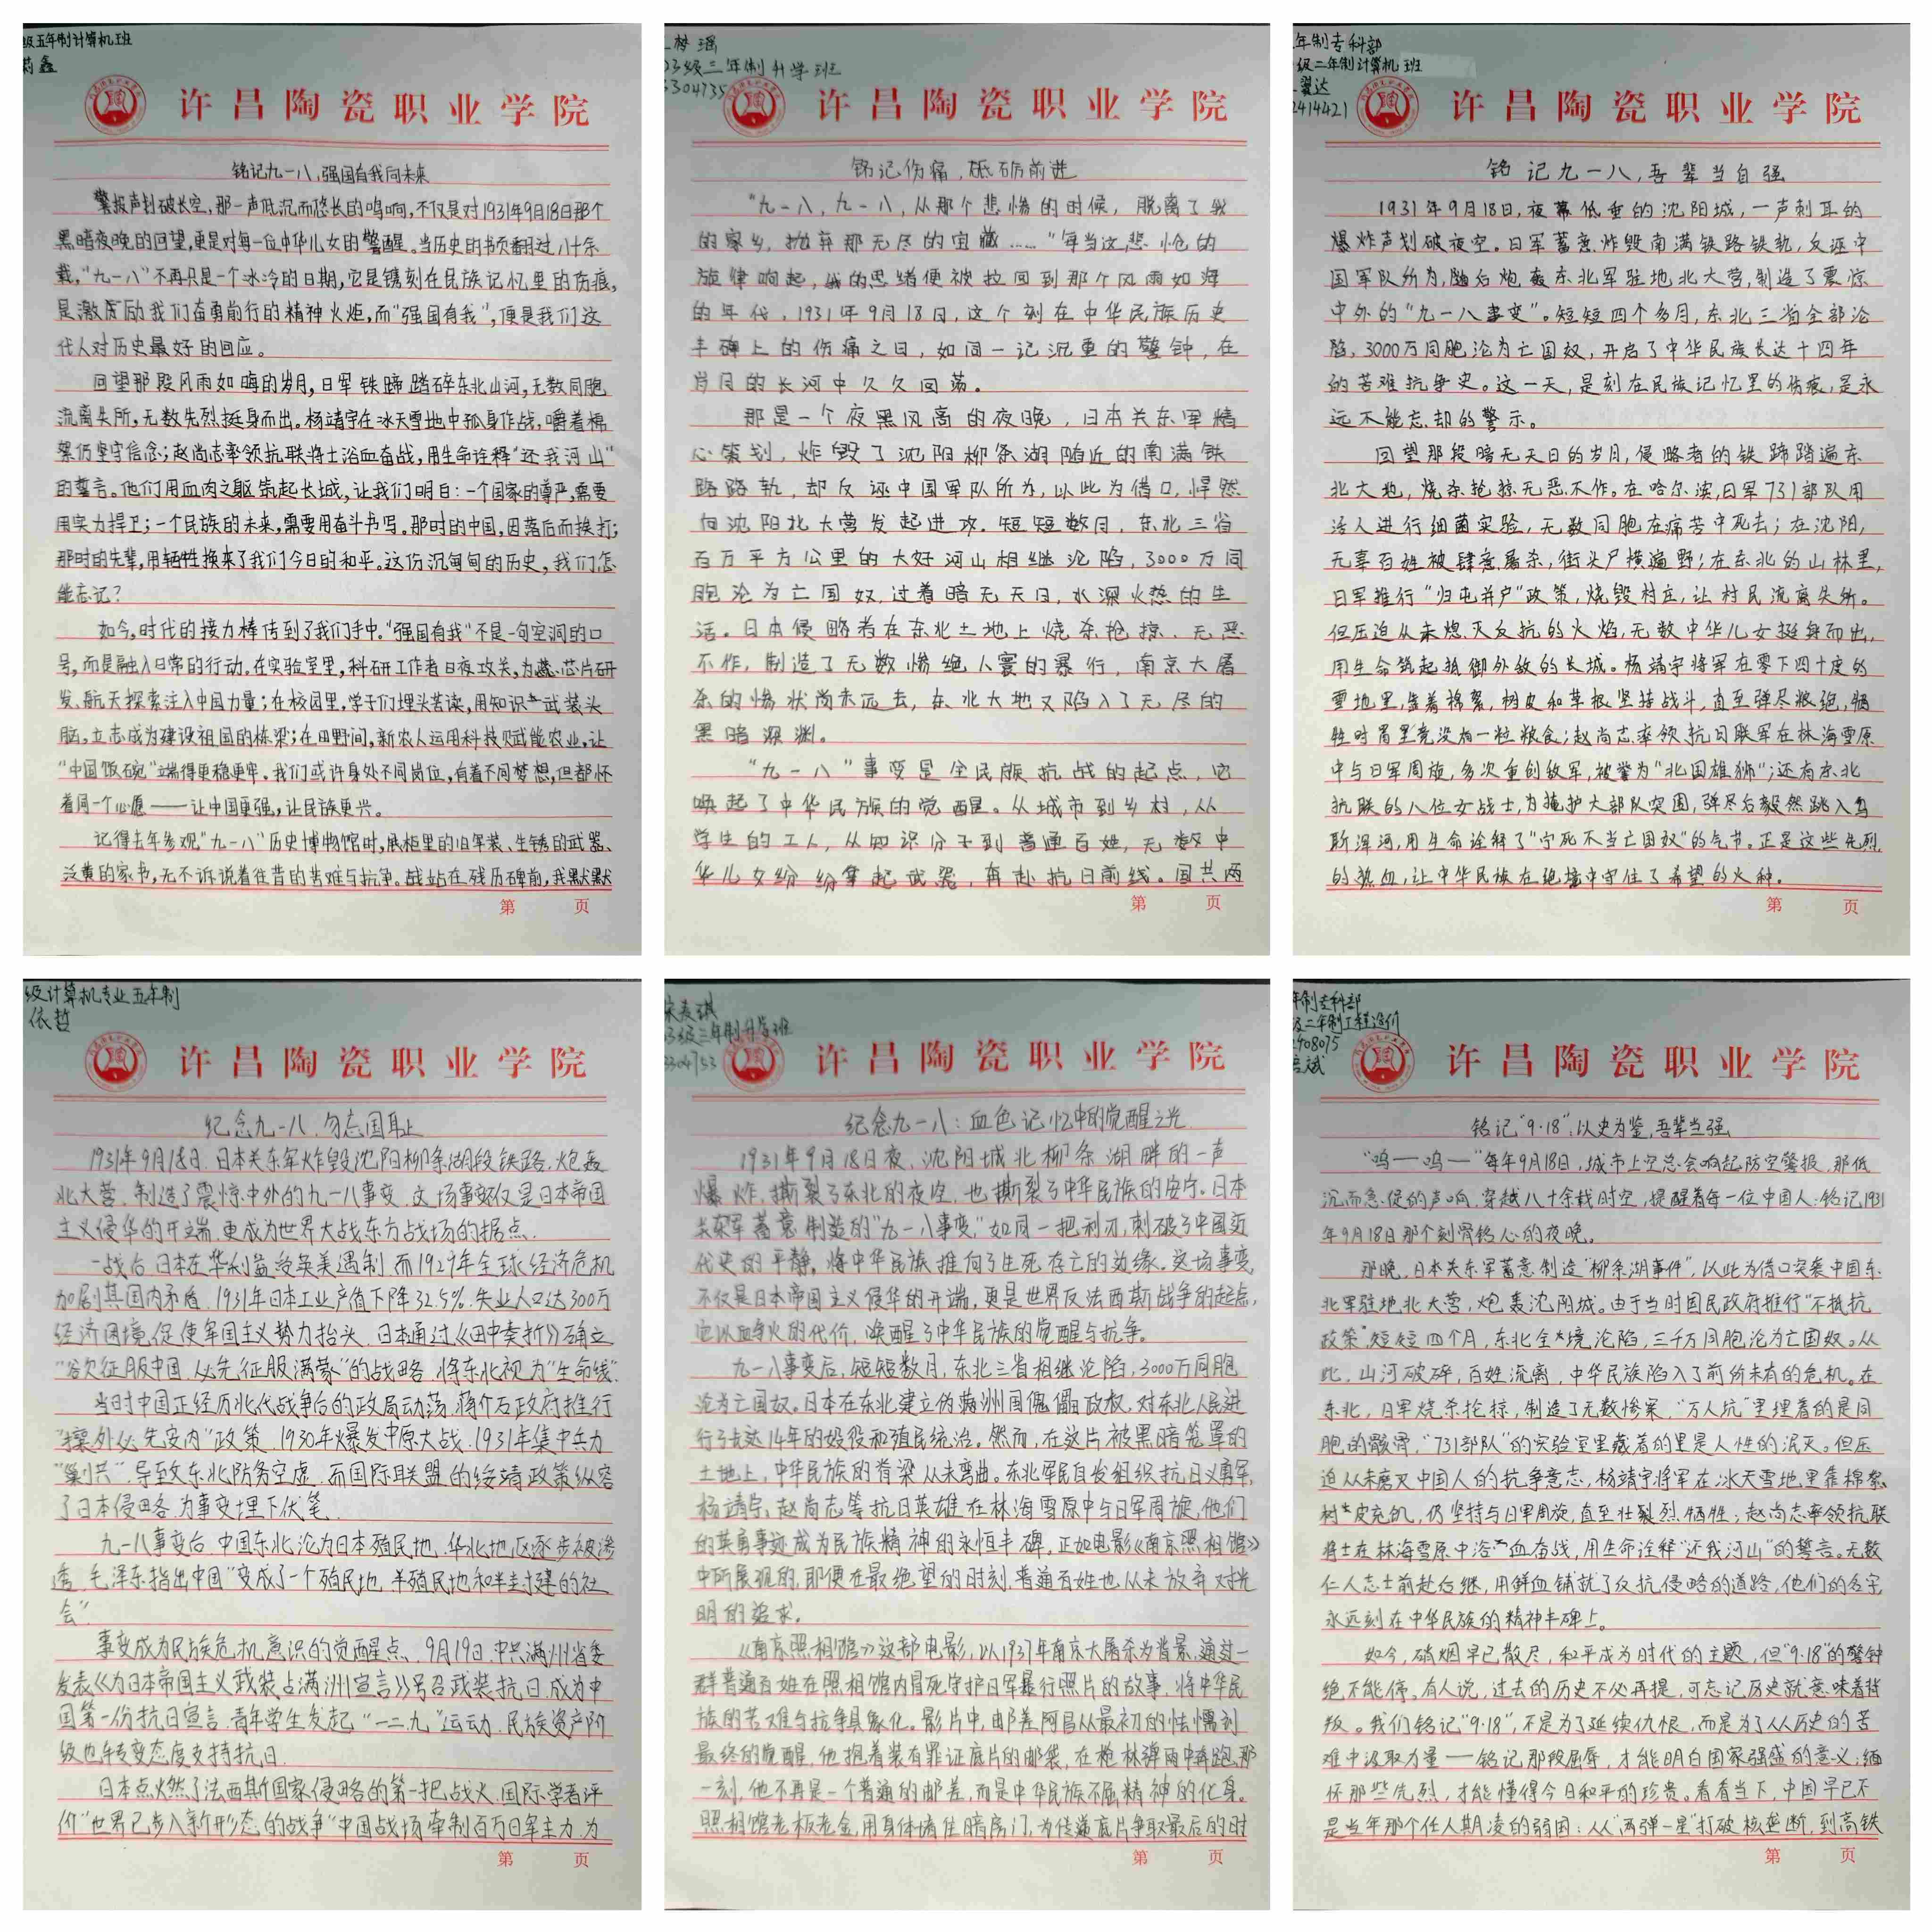 级五年制计算机班
莉鑫
许昌陶瓷职业学院
铭记九一八,强国自我向未来
警报声划破长空,那一声低沉而悠长的鸣响,不仅是对1931年9月18日那个
黑暗夜晚的回望,更是对每一位中华儿女的警醒。当历史的书页翻过八十余
载,“九一八”不再只是一个冰冷的日期,它是镌刻在民族记忆里的伤痕,
是激励我们奋勇前行的精神火炬,而“强国有我”,便是我们这
代人对历史最好的回应。
回望那段风雨如晦的岁月,日军铁蹄踏碎东北山河,无数同胞
流离失所,无数先烈挺身而出。杨靖宇在冰天雪地中孤身作战,嚼着棉
絮仍坚守信念;赵尚志率领抗联将士浴血奋战,用生命诠释“还我河山”
的誓言。他们用血肉之躯筑起长城,让我们明白:一个国家的尊严,需要
用实力捍卫;一个民族的未来,需要用奋斗书写。那时的中国,因落后而挨打;
那时的先辈,用牺牲换来了我们今日的和平。这份沉甸甸的历史,我们怎
能忘记?
如今,时代的接力棒传到了我们手中。“强国有我”不是一句空洞的口
号,而是融入日常的行动。在实验室里,科研工作者日夜攻关,为芯片研
发、航天探索注入中国力量;在校园里,学子们埋头苦读,用知识武装头
脑,立志成为建设祖国的栋梁;在田野间,新农人运用科技赋能农业,让
“中国饭碗”端得更稳更牢。我们或许身处不同岗位,有着不同梦想,但都怀
着同一个心愿——让中国更强,让民族更兴。
记得去年参观“九一八”历史博物馆时,展柜里的旧军装、生锈的武器、
泛黄的家书,无不诉说着往昔的苦难与抗争。战站在残历碑前,我默默
第 页
梦瑶
03级三年制升学班
3304735
许昌陶瓷职业学院
铭记伤痛,砥砺前进
“九一八,九一八,从那个悲惨的时候,脱离了我
的家乡,抛弃那无尽的宝藏……”每当这悲怆的
旋律响起,我的思绪便被拉回到那个风雨如海
的年代,1931年9月18日,这个刻在中华民族历史
丰碑上的伤痛之日,如同一记沉重的警钟,在
岁月的长河中久久回荡。
那是一个夜黑风高的夜晚,日本关东军精
心策划,炸毁了沈阳柳条湖附近的南满铁
路路轨,却反诬中国军队所为,以此为借口,悍然
向沈阳北大营发起进攻。短短数月,东北三省
百万平方公里的大好河山相继沦陷,3000万同
胞沦为亡国奴,过着暗无天日,水深火热的生
活。日本侵略者在东北土地上烧杀抢掠、无恶
不作,制造了无数惨绝人寰的暴行,南京大屠
杀的惨状尚未远去,东北大地又陷入了无尽的
黑暗深渊。
“九一八”事变是全民族抗战的起点,它
唤起了中华民族的觉醒。从城市到乡村,从
学生的工人,从知识分子到普通百姓,无数中
华儿女纷纷拿起武器,奔赴抗日前线。国共两
第 页
年制专科部
级二年制计算机班
翼达
2414421
许昌陶瓷职业学院
铭记九一八,吾辈当自强
1931年9月18日,夜幕低垂的沈阳城,一声刺耳的
爆炸声划破夜空。日军蓄意炸毁南满铁路铁轨,反诬中
国军队所为,随后炮轰东北军驻地北大营,制造了震惊
中外的“九一八事变”。短短四个多月,东北三省全部沦
陷,3000万同胞沦为亡国奴,开启了中华民族长达十四年
的苦难抗争史。这一天,是刻在民族记忆里的伤痕,是永
远不能忘却的警示。
回望那段暗无天日的岁月,侵略者的铁蹄踏遍东
北大地,烧杀抢掠无恶不作。在哈尔滨,日军731部队用
活人进行细菌实验,无数同胞在痛苦中死去;在沈阳,
无辜百姓被肆意屠杀,街头尸横遍野;在东北的山林里,
日军推行“归屯并户”政策,烧毁村庄,让村民流离失所。
但压迫从未熄灭反抗的火焰,无数中华儿女挺身而出,
用生命筑起抵御外敌的长城。杨靖宇将军在零下四十度的
雪地里,靠着棉絮,树皮和草根坚持战斗,直至弹尽粮绝,牺
牲时胃里竟没有一粒粮食;赵尚志率领抗日联军在林海雪原
中与日军周旋,多次重创敌军,被誉为“北国雄狮”;还有东北
抗联的八位女战士,为掩护大部队突围,弹尽后毅然跳入乌
斯浑河,用生命诠释了“宁死不当亡国奴”的气节。正是这些先烈
的热血,让中华民族在绝境中守住了希望的火种。
第 页
级计算机专业五年制
依哲
许昌陶瓷职业学院
纪念九一八.勿忘国耻
1931年9月18日.日本关东军炸毁沈阳柳条湖段铁路.炮轰
北大营.制造了震惊中外的九一八事变.这场事变仅是日本帝国
主义侵华的开端.更成为世界大战东方战场的据点.
一战后.日本在华利益受英美遏制.而1929年全球经济危机
加剧其国内矛盾.1931年日本工业产值下降32.5%.失业人口达300万
经济困境促使军国主义势力抬头.日本通过《田中奏折》确立
“欲征服中国.必先征服满蒙”的战略.将东北视为“生命线”.
当时中国正经历北伐战争后的政局动荡.蒋介石政府推行
“攘外必先安内”政策.1930年爆发中原大战.1931年集中兵力
“剿共”.导致东北防务空虚.而国际联盟的绥靖政策纵容
了日本侵略.为事变埋下伏笔.
九一八事变后.中国东北沦为日本殖民地.华北地区逐步被渗
透.毛泽东指出中国“变成了一个殖民地.半殖民地和半封建的社
会”.
事变成为民族危机意识的觉醒点.9月19日.中共满州省委
发表《为日本帝国主义武装占满洲宣言》号召武装抗日.成为中
国第一份抗日宣言.青年学生发起“一二九”运动.民族资产阶
级也转变态度支持抗日.
日本点火燃了法西斯国家侵略的第一把战火.国际学者评
价“世界已步入新形态的战争”中国战场牵制百万日军主力.为
第 页
03级三年制升学班
3304753
许昌陶瓷职业学院
纪念九一八:血色记忆中的觉醒之光
1931年9月18日夜,沈阳城北柳条湖畔的一声
爆炸,撕裂了东北的夜空,也撕裂了中华民族的安宁。日本
关东军蓄意制造的“九一八事变”,如同一把利刃,刺破了中国近
代史的平静,将中华民族推向了生死存亡的边缘。这场事变,
不仅是日本帝国主义侵华的开端,更是世界反法西斯战争的起点,
它以血与火的代价,唤醒了中华民族的觉醒与抗争。
九一八事变后,短短数月,东北三省相继沦陷,3000万同胞
沦为亡国奴。日本在东北建立伪满洲国傀儡政权,对东北人民进
行了长达14年的奴役和殖民统治。然而,在这片被黑暗笼罩的
土地上,中华民族的脊梁从未弯曲。东北军民自发组织抗日义勇军,
杨靖宇、赵尚志等抗日英雄在林海雪原中与日军周旋,他们
的英勇事迹成为民族精神的永恒丰碑,正如电影《南京照相馆》
中所展现的,即便在最绝望的时刻,普通百姓也从未放弃对光
明的追求。
《南京照相馆》这部电影,以1937年南京大屠杀为背景,通过一
群普通百姓在照相馆内冒死守护日军暴行照片的故事,将中华民
族的苦难与抗争具象化。影片中,邮差阿昌从最初的怯懦到
最终的觉醒,他抱着装有罪证底片的邮袋,在枪林弹雨中奔跑,那
一刻,他不再是一个普通的邮差,而是中华民族不屈精神的化身。
照相馆老板老金,用身体堵住暗房门,为传递底片争取最后的时
第 页
年制专科部
级二年制工程造价
2408075
斌
许昌陶瓷职业学院
铭记“9·18”:以史为鉴,吾辈当强
“呜——呜——”每年9月18日,城市上空总会响起防空警报,那低
沉而急促的声响,穿越八十余载时空,提醒着每一位中国人:铭记1931
年9月18日那个刻骨铭心的夜晚。
那晚,日本关东军蓄意制造“柳条湖事件”,以此为借口突袭中国东
北军驻地北大营,炮轰沈阳城。由于当时国民政府推行“不抵抗
政策”,短短四个月,东北全境沦陷,三千万同胞沦为亡国奴。从
此,山河破碎,百姓流离,中华民族陷入了前所未有的危机。在
东北,日军烧杀抢掠,制造了无数惨案,“万人坑”里埋着的是同
胞的骸骨,“731部队”的实验室里藏着的是人性的泯灭。但压
迫从未磨灭中国人的抗争意志,杨靖宇将军在冰天雪地里靠棉絮
树皮充饥,仍坚持与日军周旋,直至壮烈牺牲;赵尚志率领抗联
将士在林海雪原中浴血奋战,用生命诠释“还我河山”的誓言。无数
仁人志士前赴后继,用鲜血铺就了反抗侵略的道路,他们的名字
永远刻在中华民族的精神丰碑上。
如今,硝烟早已散尽,和平成为时代的主题,但“9·18”的警钟
绝不能停。有人说,过去的历史不必再提,可忘记历史就意味着背
叛。我们铭记“9·18”,不是为了延续仇恨,而是为了从历史的苦
难中汲取力量——铭记那段屈辱,才能明白国家强盛的意义;缅
怀那些先烈,才能懂得今日和平的珍贵。看看当下,中国早已不
是当年那个任人欺凌的弱国:从“两弹一星”打破核垄断,到高铁
第 页